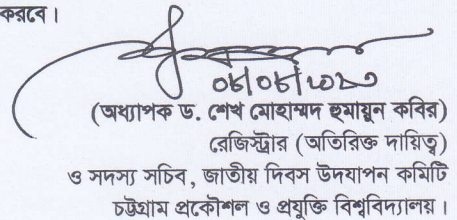 করবে।
০৮|০৮|২০২৩
(অধ্যাপক ড. শেখ মোহাম্মদ হুমায়ুন কবির)
রেজিস্ট্রার (অতিরিক্ত দায়িত্ব)
ও সদস্য সচিব, জাতীয় দিবস উদযাপন কমিটি
চট্টগ্রাম প্রকৌশল ও প্রযুক্তি বিশ্ববিদ্যালয়।